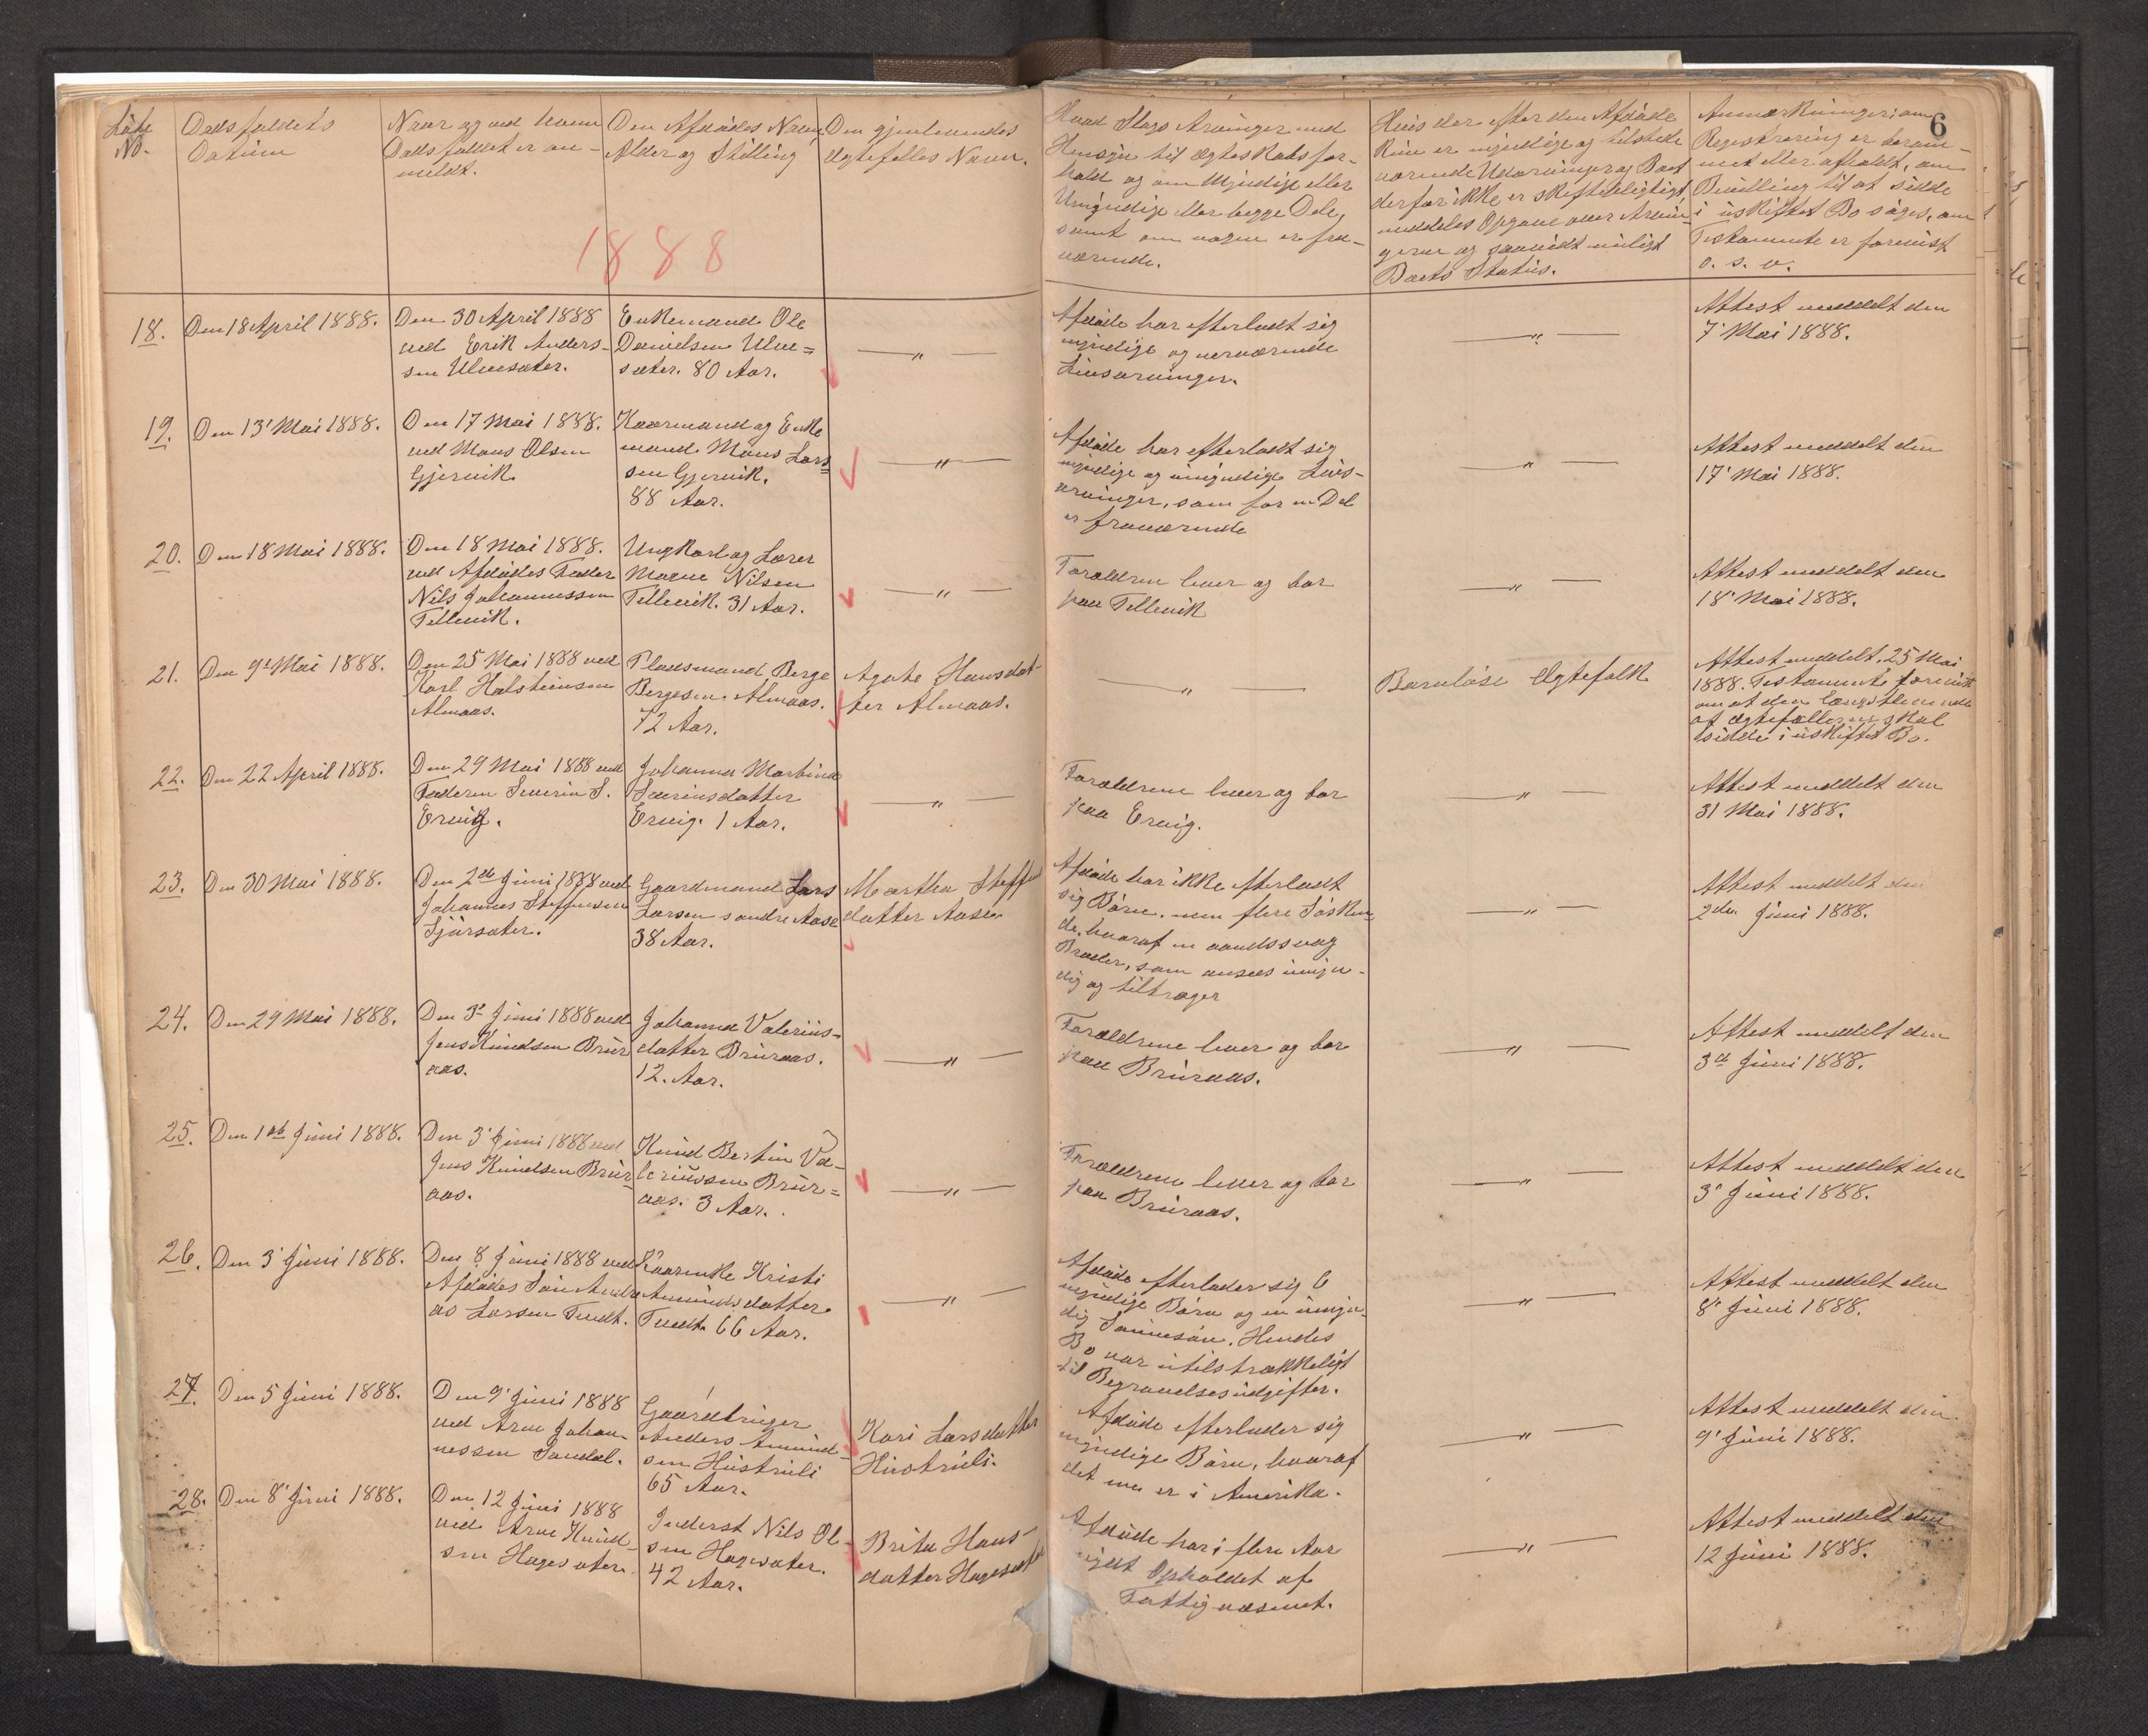 6
Løbe
No.
Dødsfaldets
Datum
Naar og ved hvem
Dødsfaldet er an-
meldt.
Den Afdødes Navn,
Alder og Stilling
Den gjenlevendes
Ægtefælles Navn.
Hvad Slags Arvinger med
Hensyn til Ægteskabsfor-
hold og om Myndige eller
Umyndige eller begge Dele,
samt om nogen er fra-
værende.
Hvis der efter den Afdøde
kun er myndige og tilstede
værende Udarvinger og Boet
derfor ikke er skiftepligtigt
meddeles Opgave over Arvin-
gerne og saavidt muligt
Boets Status.
Anmærkninger; om
Registrering er beram-
met eller afholdt, om
Bevilling til at sidde
i uskiftet Bo søges, om
Testamente er forevist
o. s. v.
1888
18.
Den 18 April 1888.
Den 30 April 1888
ved Erik Anders-
sen Ulvesæter.
Enkemand Ole
Danielsen Ulve=
sæter. 80 Aar.
— „ —
Afdøde har efterladt sig
myndige og nærværende
Livsarvinger.
— „ —
Attest meddelt den
7' Mai 1888.
19.
Den 13' Mai 1888.
Den 17 Mai 1888.
ved Mons Olsen
Gjervik.
Kaarmand og Enke
mand Mons Lars=
sen Gjervik.
88 Aar.
— „ —
Afdøde har efterladt sig
myndige og umyndige Livs-
arvinger, som for en Del
er fraværende
— „ —
Attest meddelt den
17' Mai 1888.
20.
Den 18 Mai 1888.
Den 18 Mai 1888.
ved Afdødes Fader
Nils Johannessen
Tellevik.
Ungkarl og Lærer
Magne Nilsen
Tellevik. 31 Aar.
— „ —
Forældrene lever og bor
paa Tellevik
— „ —
Attest meddelt den
18' Mai 1888.
21.
Den 9' Mai 1888.
Den 25 Mai 1888 ved
Karl Halsteinsen
Almaas.
Pladsmand Berge
Bergesen Almaas.
72 Aar.
Agate Hansdat-
ter Almaas.
— „ —
Barnløse Ægtefolk
Attest meddelt, 25 Mai
1888. Testamente forevist
om at den Længstlevende
af Ægtefællerne skal
sidde i uskiftet Bo.
22.
Den 22 April 1888.
Den 29 Mai 1888 ved
Faderen Severin S.
Ervig.
Johanna Martine
Severinsdatter
Ervig. 1 Aar.
— „ —
Forældrene lever og bor
paa Ervig.
— „ —
Attest meddelt den
31 Mai 1888.
23.
Den 30 Mai 1888.
Den 2den Juni 1888 ved
Johannes Steffensen
Gaardmand Lars
Larsen søndre Aase
38 Aar.
Martha Steffens
datter Aasen
Afdøde har ikke efterladt
sig Børn, men flere Søsken-
de, hvoraf en aandssvag
Broder, som ansees umyn-
dig og tiltrænger
— „ —
Attest meddelt den
2den Juni 1888.
24.
Den 29 Mai 1888.
Den 3' Juni 1888 ved
Jens Knudsen Brur
aas.
Johanna Valerius-
datter Bruraas.
12. Aar.
— „ —
Forældrene lever og bor
paa Bruraas.
— „ —
Attest meddelt den
3d Juni 1888.
25.
Den 1ste Juni 1888.
Den 3' Juni 1888 ved
Jens Knudsen Brur
aas.
Knud Bertin Va-
leriussen Brur=
aas. 3 Aar.
— „ —
Forældrene lever og bor
paa Bruraas.
— „ —
Attest meddelt den
3' Juni 1888.
26.
Den 3' Juni 1888.
Den 8' Juni 1888 ved
Afdødes Søn Andre
as Larsen Tvedt.
Kaarenke Kristi
Amundsdatter
Tvedt. 66 Aar.
— „ —
Afdøde efterlader sig 6
myndige Børn og en umyn-
dig Sønnesøn. Hendes
Bo var utilstrækkeligt
til Begravelsesudgifter.
— „ —
Attest meddelt den
8' Juni 1888.
27.
Den 5 Juni 1888.
Den 9' Juni 1888
ved Arne Johan-
nessen Søndal.
Gaardbruger
Anders Amund-
sen Hustruli
65 Aar.
Kari Larsdatter
Hustruli.
Afdøde efterlader sig
myndige Børn, hvoraf
det ene er i Amerika.
— „ —
Attest meddelt den
9' Juni 1888.
28.
Den 8' Juni 1888.
Den 12 Juni 1888
ved Arne Knud-
sen Hagesæter.
Inderst Nils Ol-
sen Hagesæter.
42 Aar.
Brita Hans-
datter Hagesæter
Afdøde har i flere Aar
nydt Opholdet af
Fattigvæsenet.
— „ —
Attest meddelt den
12 Juni 1888.